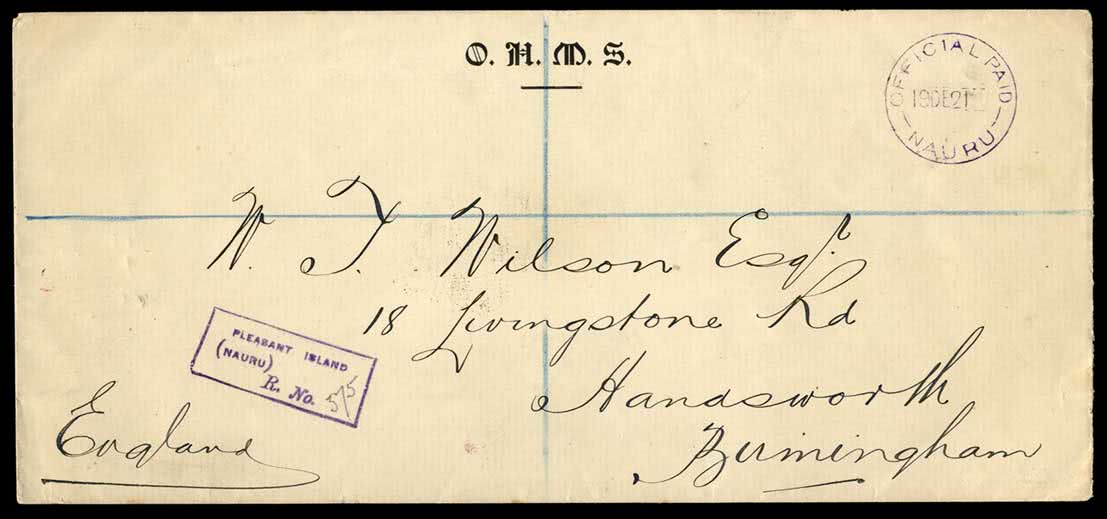 O. H. M. S.
OFFICIAL PAID
19DE21
NAURU
W. T. Wilson Esqr.
18 Livingstone Rd
Handsworth
Birmingham
England
PLEASANT ISLAND
(NAURU)
R. No. 575